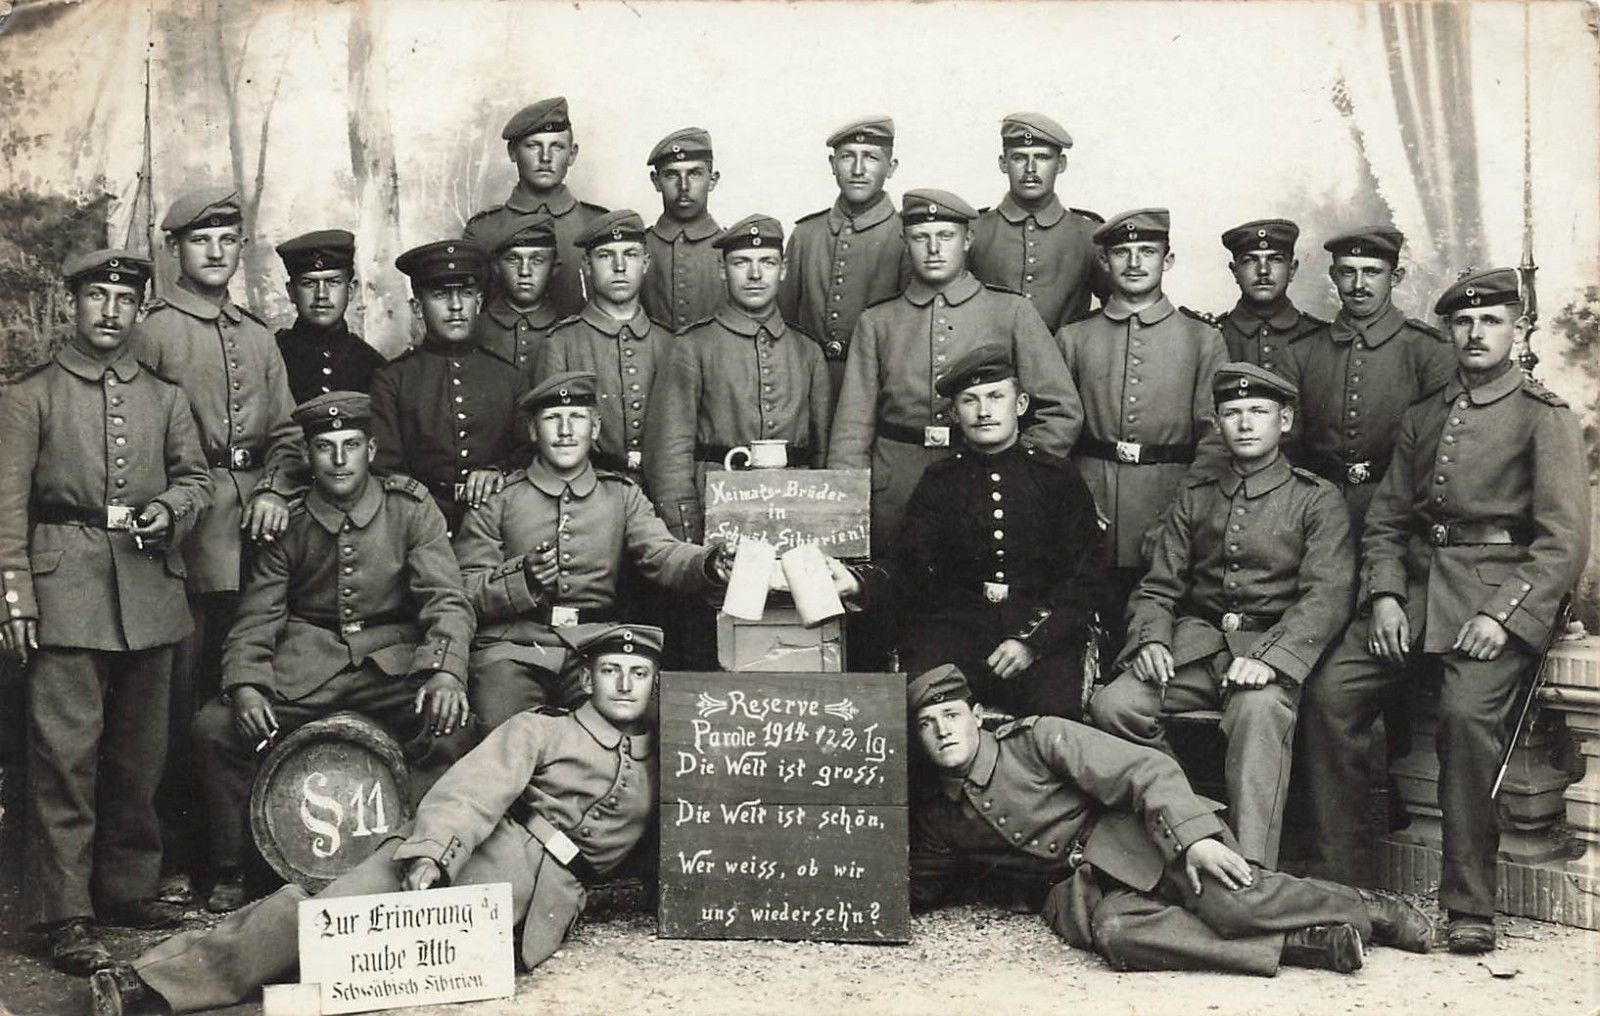 Heimats-Brüder
in
Schwäb. Sibierien!
Reserve
Parole 1914 122 Tg.
Die Welt ist gross,
Die Welt ist schön,
Wer weiss, ob wir
uns wiederseh'n?
§ 11
Zur Erinerung a/d
rauhe Alb
Schwäbisch Sibirien.